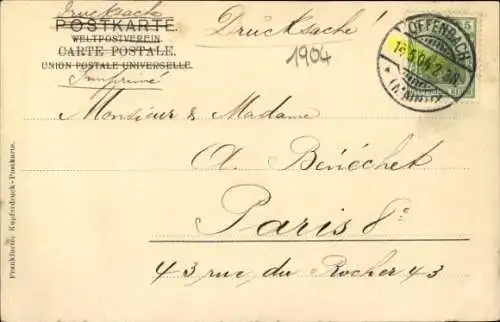 Drucksache
Drucksache!
POSTKARTE
WELTPOSTVEREIN.
CARTE POSTALE.
UNION POSTALE UNIVERSELLE.
Imprimé
1904
OFFENBACH
5
(MAIN)
Monsieur & Madame
A. Bénéchet
Paris 8e
43 rue du Rocher 43
Frankfurter Kupferdruck-Postkarte.